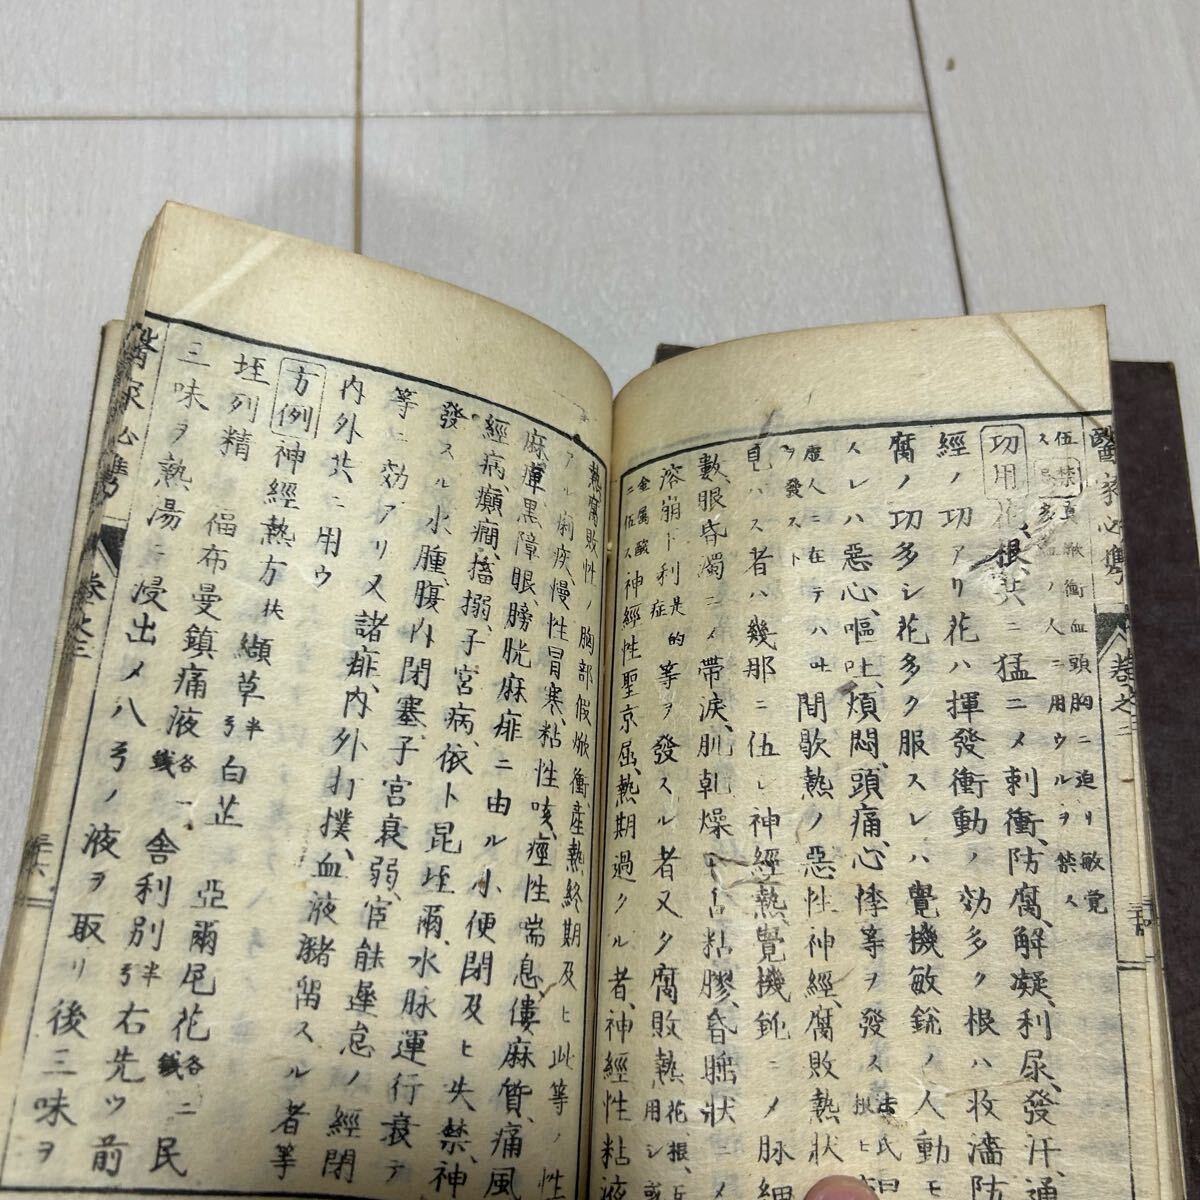 醫家必携 卷之三 三十四
伍禁 真焮衝血頭胸ニ迫リ敏覺
ノ人ニ用ウルヲ禁ス
功用 花、根、共ニ猛ニメ刺衝、防腐、解凝、利尿、發汗、通
經ノ功アリ花ハ揮發衝動ノ効多ク根ハ收濇防
腐ノ功多シ花多ク服スレハ覺機敏銳ノ人動モ
スレハ惡心、嘔吐、煩悶、頭痛、心悸等ヲ發ス
虚人ニ在テハ吐
ヲ發スト
間歇熱ノ惡性神經、腐敗熱狀
見ハス者ハ幾那ニ伍シ神經熱、覺機鈍ニメ脉細
數、眼昏濁ニメ帶淚、肌乾燥
粘膠、昏睡狀ニメ
溶崩ト利是的
里症
等ヲ發スル者又夕腐敗熱
花、根、
用シ或
金属酸
ニ伍ス
神經性聖京屈、熱期過クル者、神經性粘液
熱腐敗性ノ胸部假焮衝、產熱、終期及ヒ此等ノ性
アル痢疾、慢性冒寒、粘性咳、痙性喘息、僂麻質、痛風
麻痺、黒障眼、膀胱麻痱ニ由ル小便閉及ヒ失禁、神
經病、癲癇、搐搦、子宮病、依卜昆垤爾、水脉運行衰テ
發スル水腫、腹內閉塞、子宮衰弱、宦能遲怠ノ經閉
等ニ効アリ又諸痱、內外打撲、血液瀦畱スル者等
內外共ニ用ウ
方例 神經熱方 扶 纈草 半弓 白芷 亞爾尼花 各二錢 民
垤列精 福布曼鎮痛液 各一錢 舎利別 半弓 右先ツ前
三味ヲ熱湯ニ浸出メ八弓ノ液ヲ取リ後三味ヲ
醫家必携 卷之三